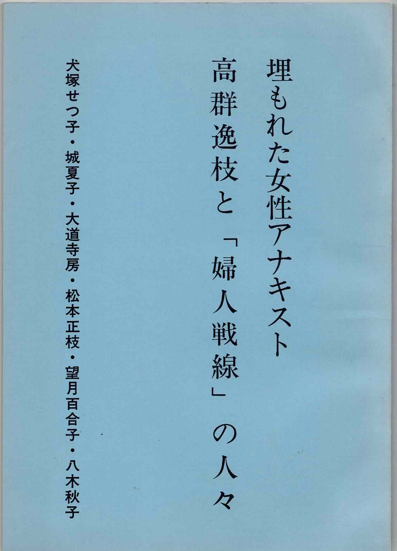 埋もれた女性アナキスト
高群逸枝と「婦人戦線」の人々
犬塚せつ子・城夏子・大道寺房・松本正枝・望月百合子・八木秋子